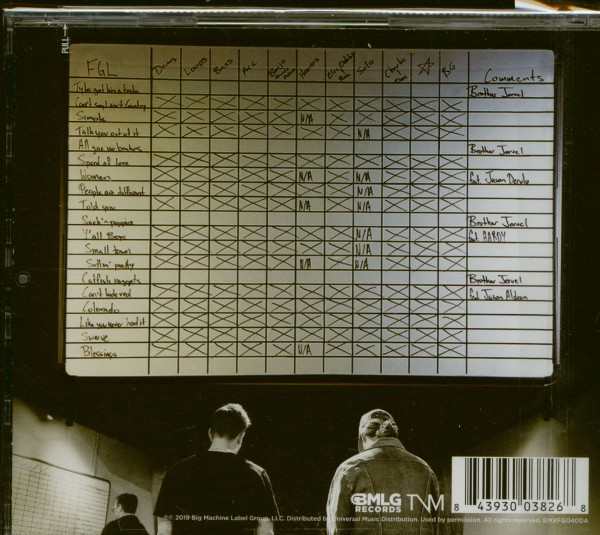 PULL
FGL Drums Loops Bass Aic Banjo Solo BG Comments
Tyler got him a tesla Brother Jervel
Can't say I ain't Country
Simple N/A
Talk you out of it N/A
All gas no brakes Brother Jervel
Speed of love
Women N/A N/A feat. Jason Derulo
People are different N/A
Told you N/A N/A
Sack'a puppies Brother Jervel
Y'all Boys N/A feat. HARDY
Small town N/A
Swerve
Sittin' pretty N/A N/A
Catfish nuggets Brother Jervel
Can't hide red feat. Jason Aldean
Colorado
Like you never had it
Swerve
Blessings N/A
BMLG RECORDS
8 43930 03826 8
℗© 2019 Big Machine Label Group, LLC. Distributed by Universal Music Distribution. Used by permission. All rights reserved. BMXFG0400A